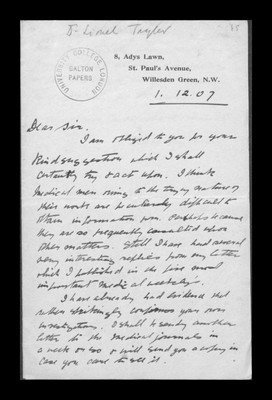 J. Lionel Tayler
35
UNIVERSITY COLLEGE LONDON
GALTON
PAPERS
8, Adys Lawn,
St. Paul's Avenue,
Willesden Green, N.W.
1. 12. 07
Dear Sir.
I am obliged to you for your
kind suggestion which I shall
certainly try & act upon. I think
medical men owing to the trying nature of
their work are peculiarly difficult to
obtain information from. Perhaps because
they are so frequently consulted upon
other matters. Still I have had several
very interesting replies from my letter
which I published in the five most
important medical weeklys.
I have already had evidence that
rather strikingly confirms your own
investigations. I shall be sending another
letter to the medical journals in
a week or so & will send you a copy in
case you care to see it.